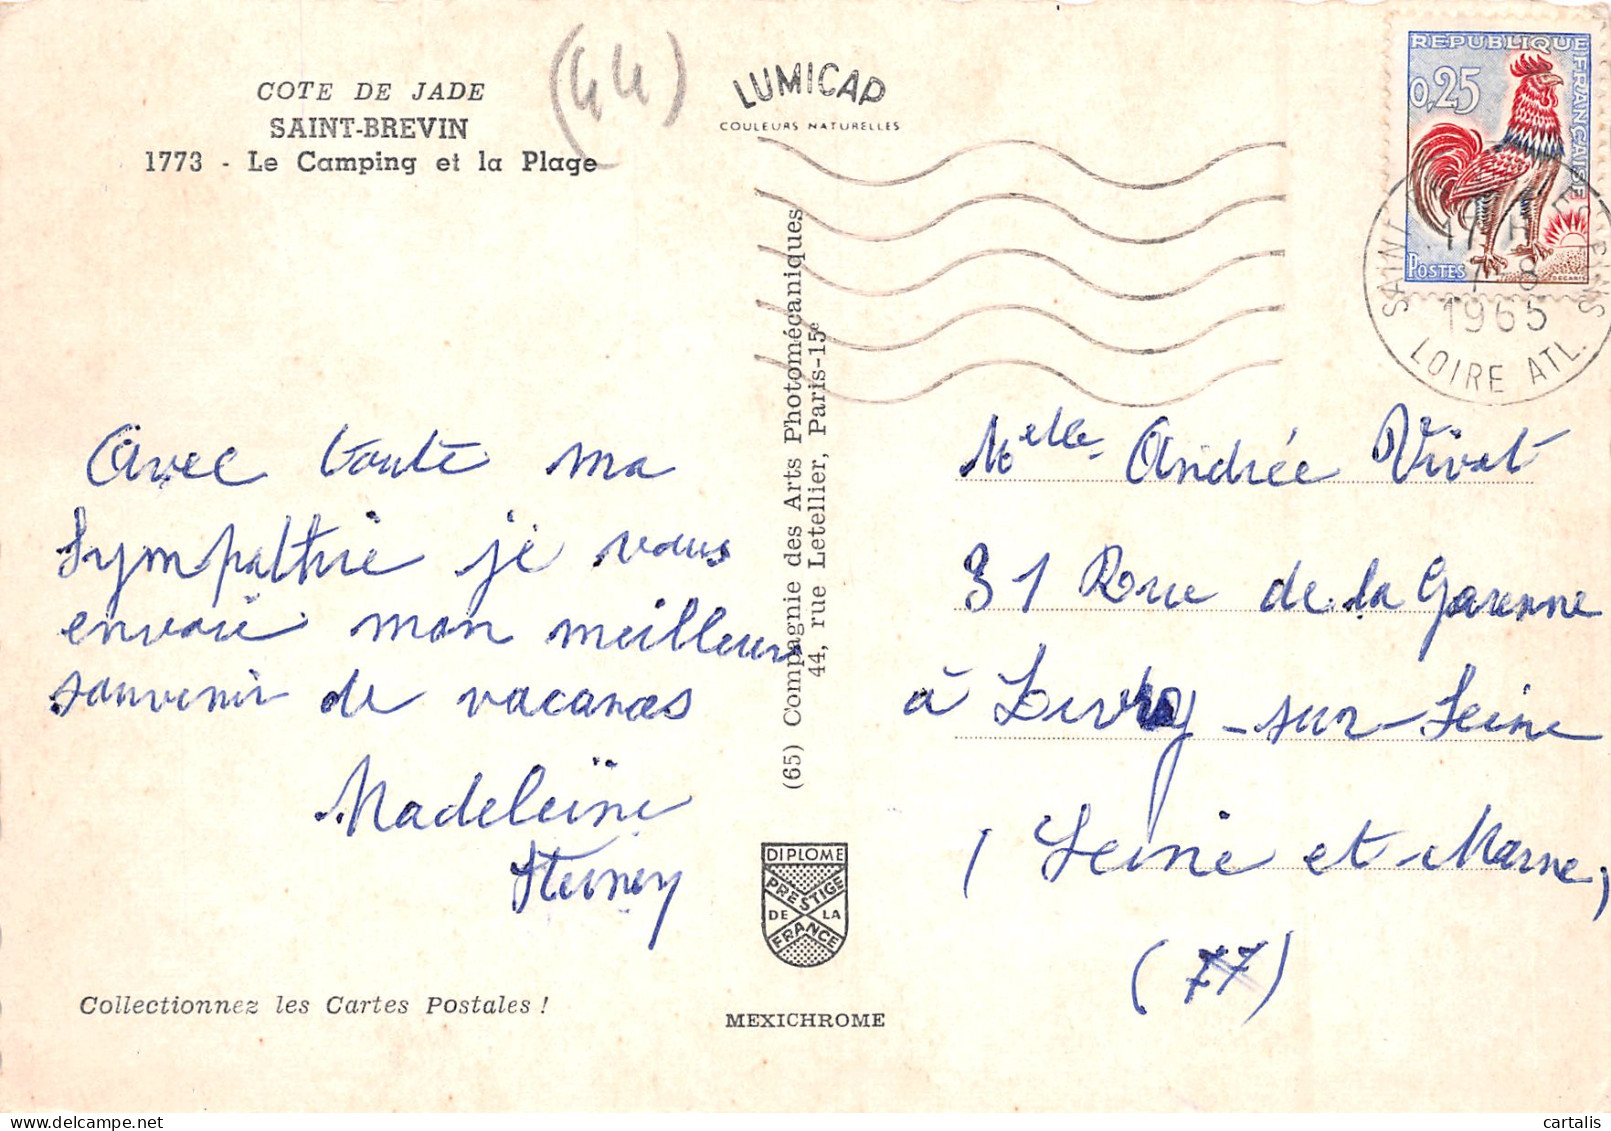 COTE DE JADE
SAINT-BREVIN
1773 - Le Camping et la Plage
(44)
LUMICAP
COULEURS NATURELLES
REPUBLIQUE FRANÇAISE
0,25
POSTES
SAINT
17 H
7 - 8
1965
LOIRE ATL.
Avec toute ma
Sympathie je vous
envoie mon meilleur
souvenir de vacances
Madeleine
(65) Compagnie des Arts Photomécaniques
44, rue Letellier, Paris-15e
Melle Andrée Vivat
31 Rue de la Garenne
à Livry-sur-Seine
(Seine et-Marne)
(77)
DIPLOME
PRESTIGE
DE LA
FRANCE
Collectionnez les Cartes Postales !
MEXICHROME
cartalis